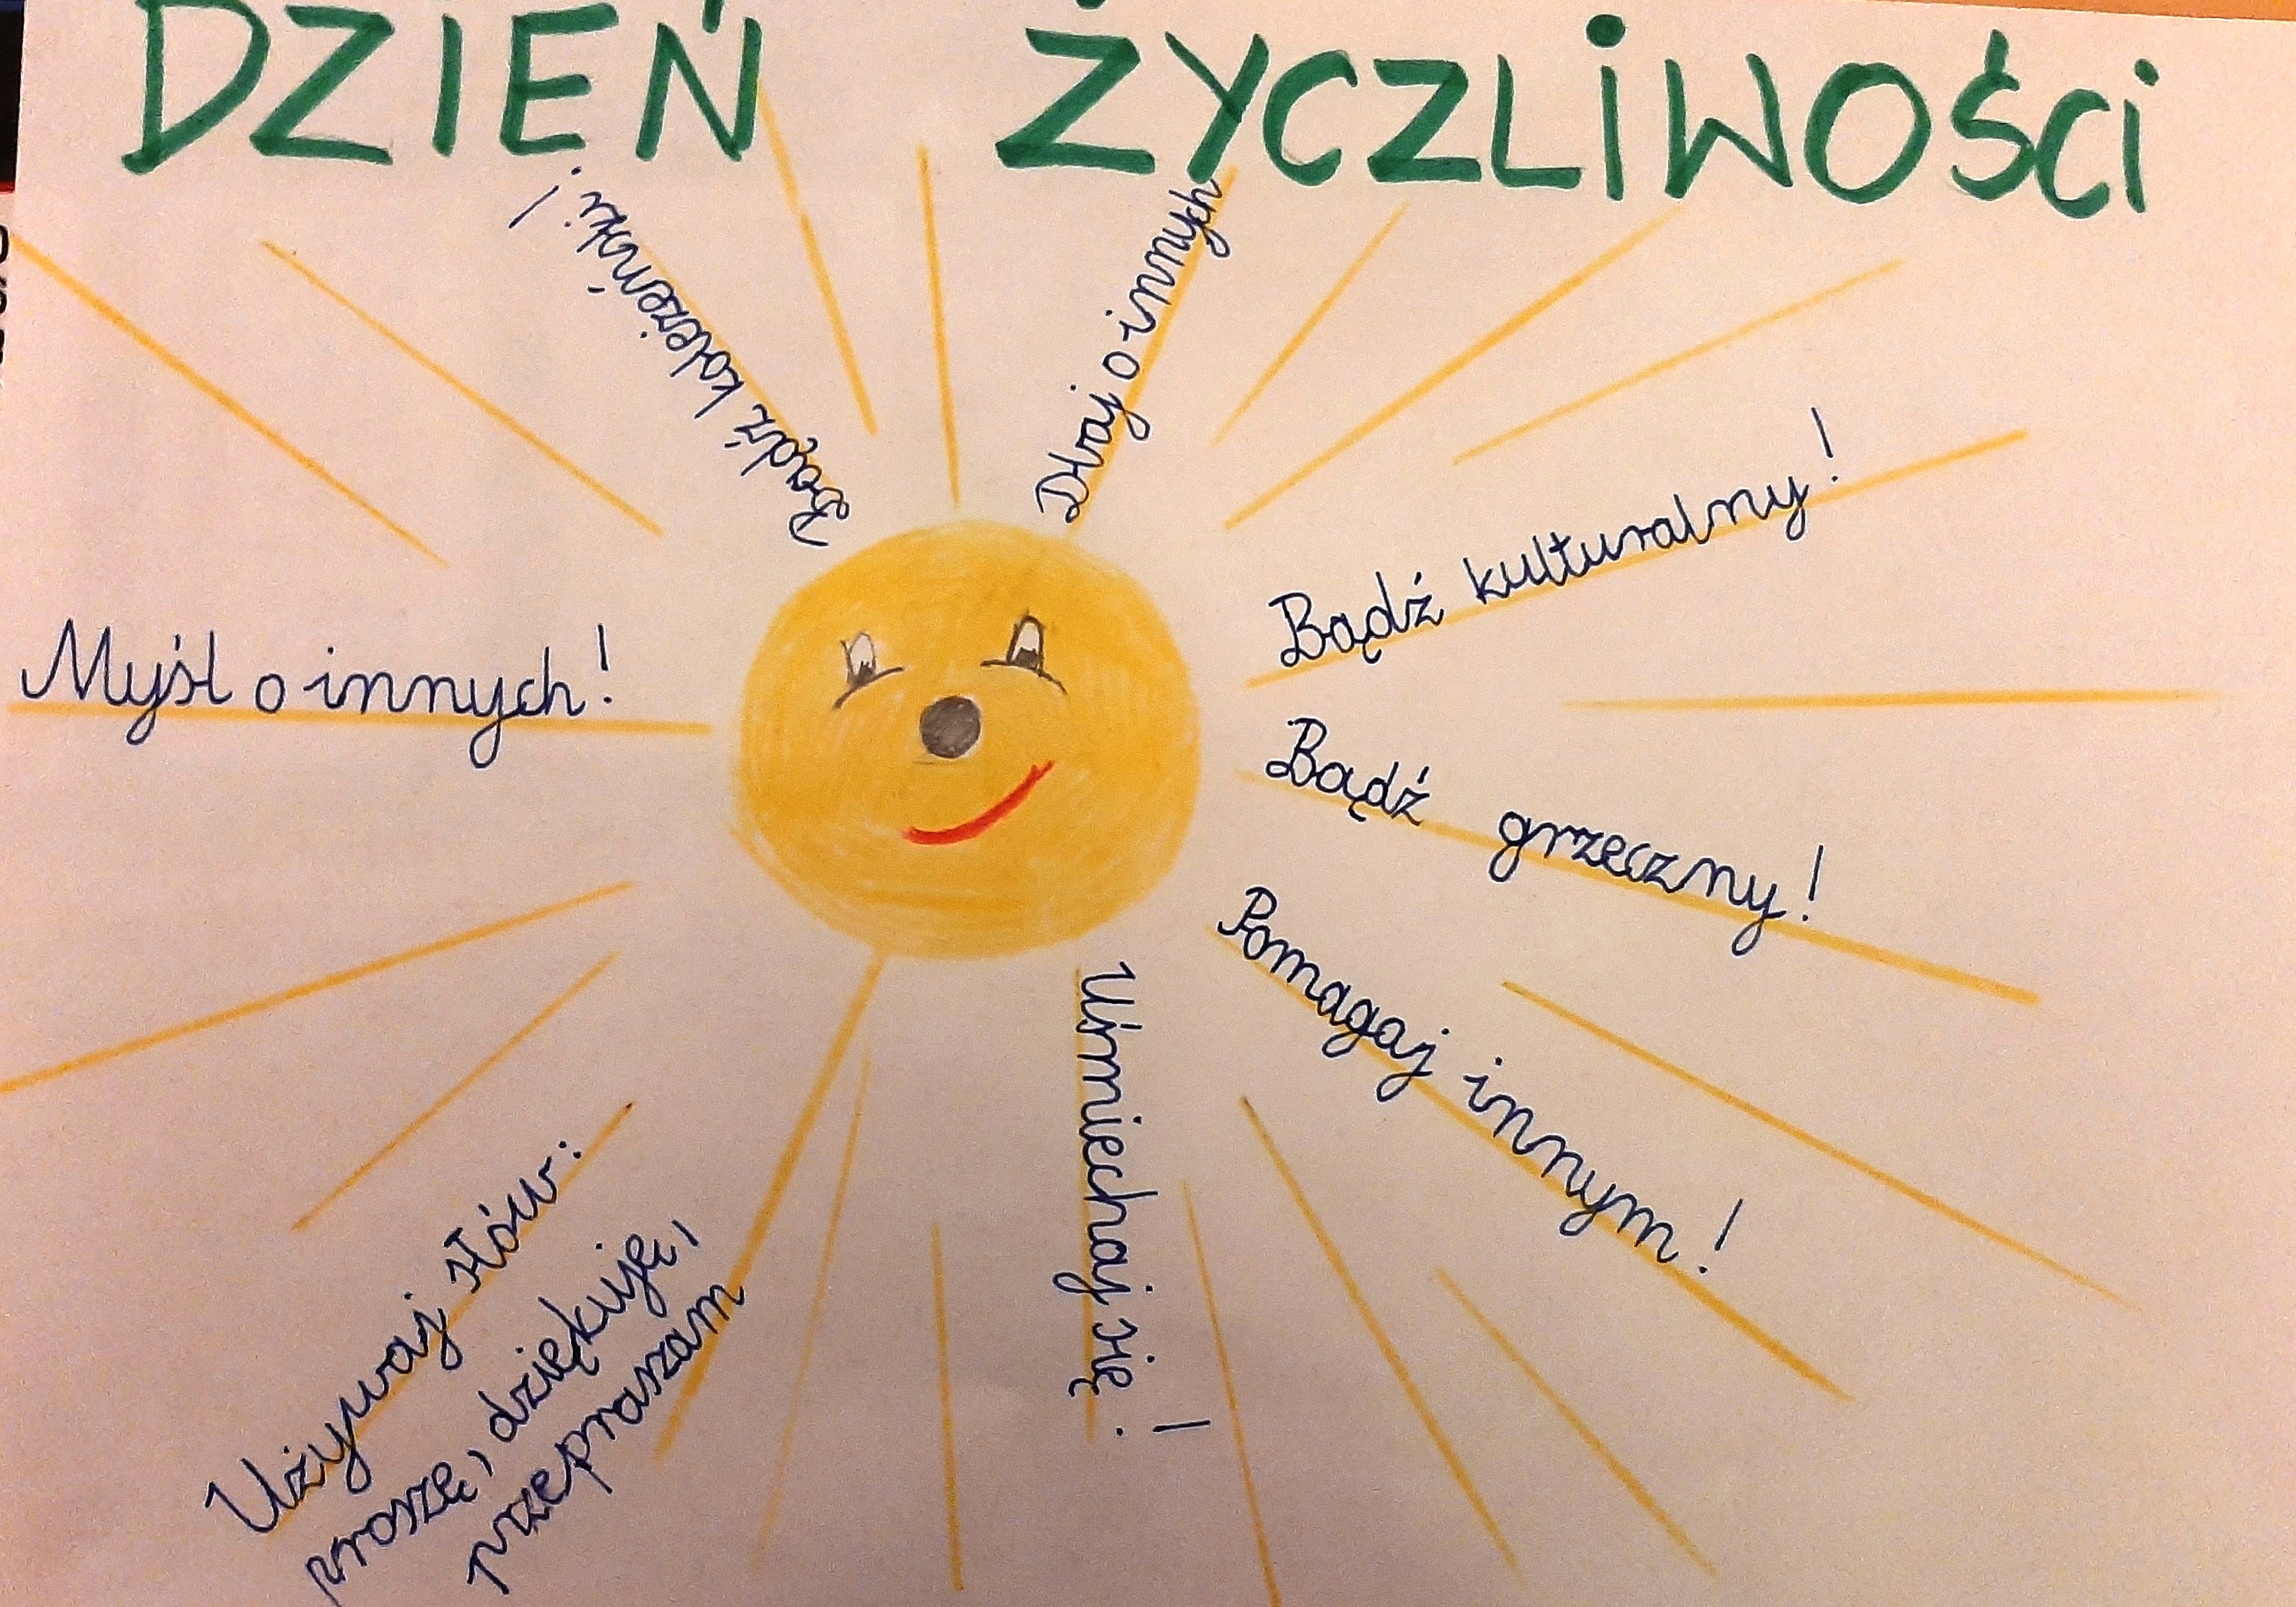 DZIEŃ ŻYCZLIWOŚCI
Bądź koleżeński!
Dbaj o innych
Bądź kulturalny!
Myśl o innych!
Bądź grzeczny!
Pomagaj innym!
Uśmiechaj się!
Używaj słów:
proszę, dziękuję,
przepraszam